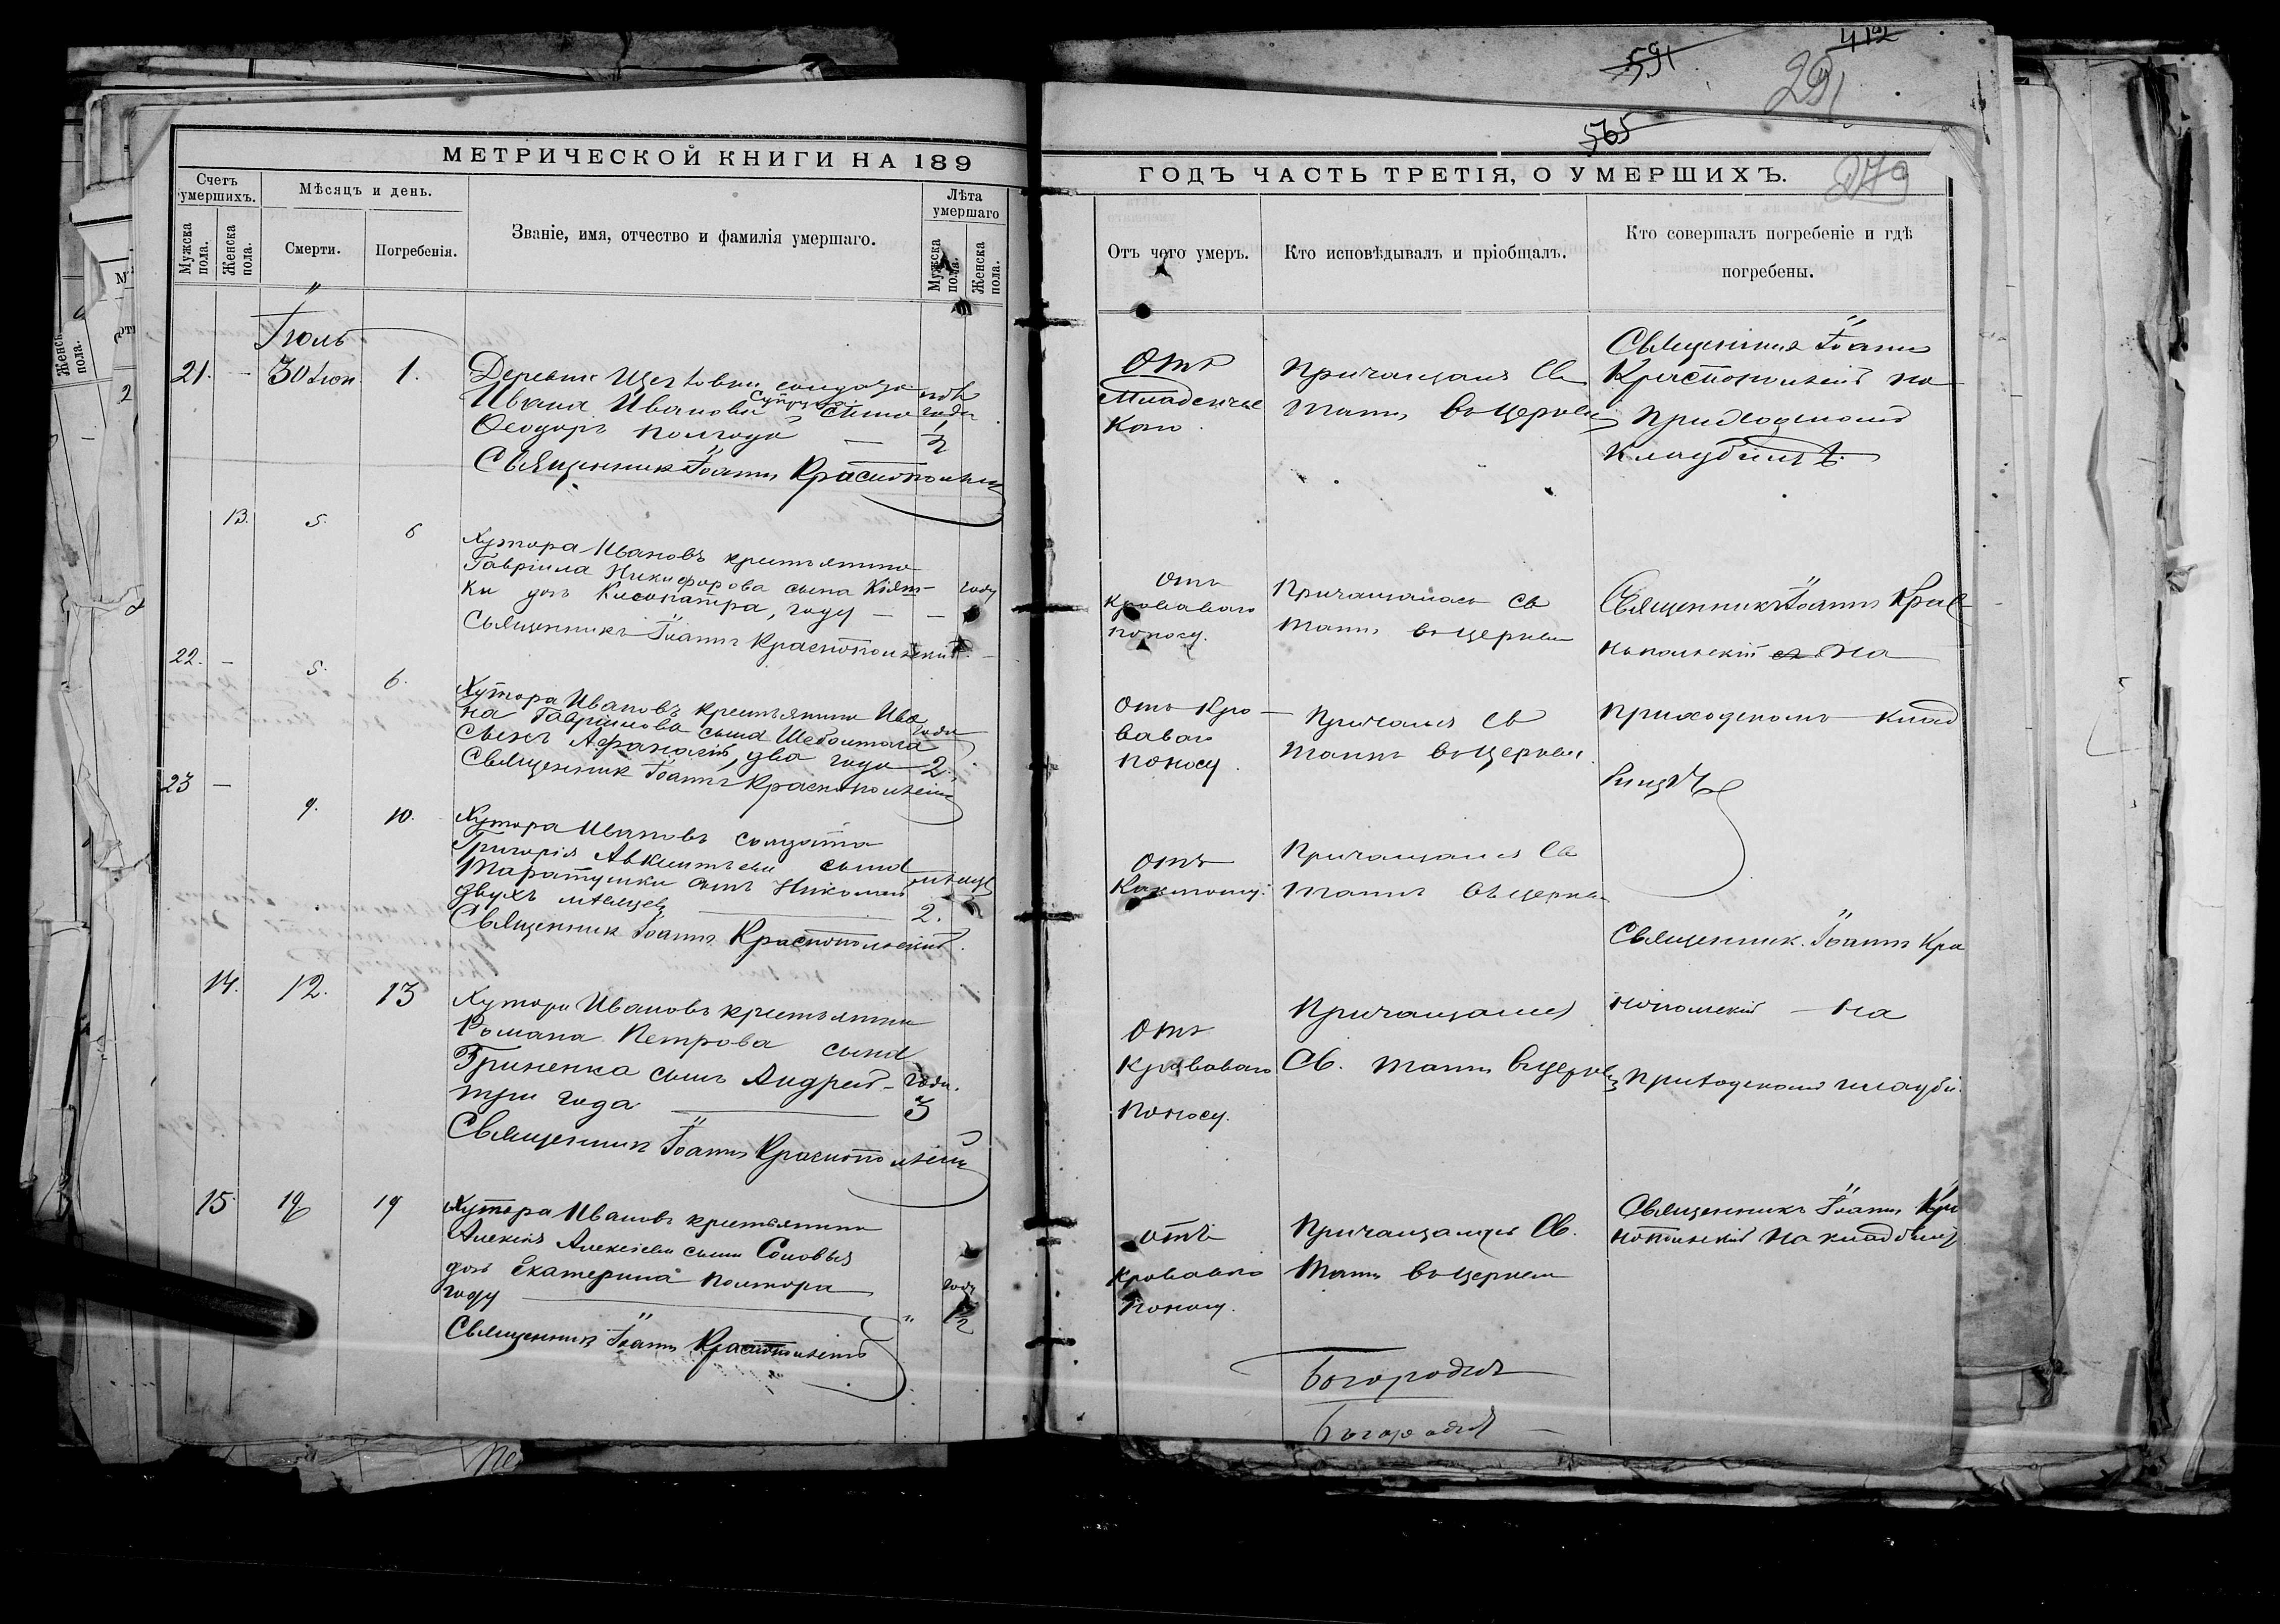 591
412
291
565
279
МЕТРИЧЕСКОЙ КНИГИ НА 189
Счетъ умершихъ.
Мужска пола.
Женска пола.
Мѣсяцъ и день.
Смерти.
Погребенія.
Званіе, имя, отчество и фамилія умершаго.
Лѣта умершаго
Мужска пола.
Женска пола.
Іюль
21. 30 Іюн 1.
Деревни солдата
Ивана Иванова сына
Ѳеодоръ полгода — ½
Священникъ Іоаннъ Краснопольскій
13. 5. 6
Хутора Ивановъ крестьянина
Гавріила Никифорова сына
дочь Клеопатра, году — — году
Священникъ Іоаннъ Краснопольскій
22. — 5. 6.
Хутора Ивановъ крестьянина Ива
на Гавриилова сына года
сынъ Афанасій, два года 2.
Священникъ Іоаннъ Краснопольскій
23 — 9. 10.
Хутора Ивановъ солдата
Григорія Авксентьева сына
Таратушки сынъ Николай
двухъ мѣсяцевъ 2.
Священникъ Іоаннъ Краснопольскій.
14. 12. 13
Хутора Ивановъ крестьянина
Романа Петрова сына
Гриненка сынъ Андрей — года.
три года 3
Священникъ Іоаннъ Краснопольскій
15. 19
Хутора Ивановъ крестьянина
Алексія Алексіева сына Соловья
дочь Екатерина полтора
году году 1½
Священникъ Іоаннъ Краснопольскій
ГОДЪ ЧАСТЬ ТРЕТІЯ, О УМЕРШИХЪ.
Отъ чего умеръ.
Кто исповѣдывалъ и пріобщалъ.
Кто совершалъ погребеніе и гдѣ погребены.
Отъ
Младенчес
каго.
Причащался Св
Таинъ въ церкви
Священникъ Іоаннъ
Краснопольскій на
Приходскомъ
Кладбищѣ.
Отъ
Кроваваго
поносу.
Причащалась Св
Таинъ въ церкви
Священникъ Іоаннъ Крас
нопольскій на
Отъ Кро-
ваваго
поносу.
Св
Таинъ въ церкви.
приходскомъ клад
бищѣ
Отъ
Причащался Св
Таинъ въ церкви
Священникъ Іоаннъ Кра
нопольскій — на
Отъ
Кроваваго
Поносу.
Причащался
Св. Таинъ въ церкви
приходскомъ кладби.
Отъ
Кроваваго
поносу.
Причащалась Св.
Таинъ въ церкви
Священникъ Іоаннъ Кра
нопольскій на кладбищѣ